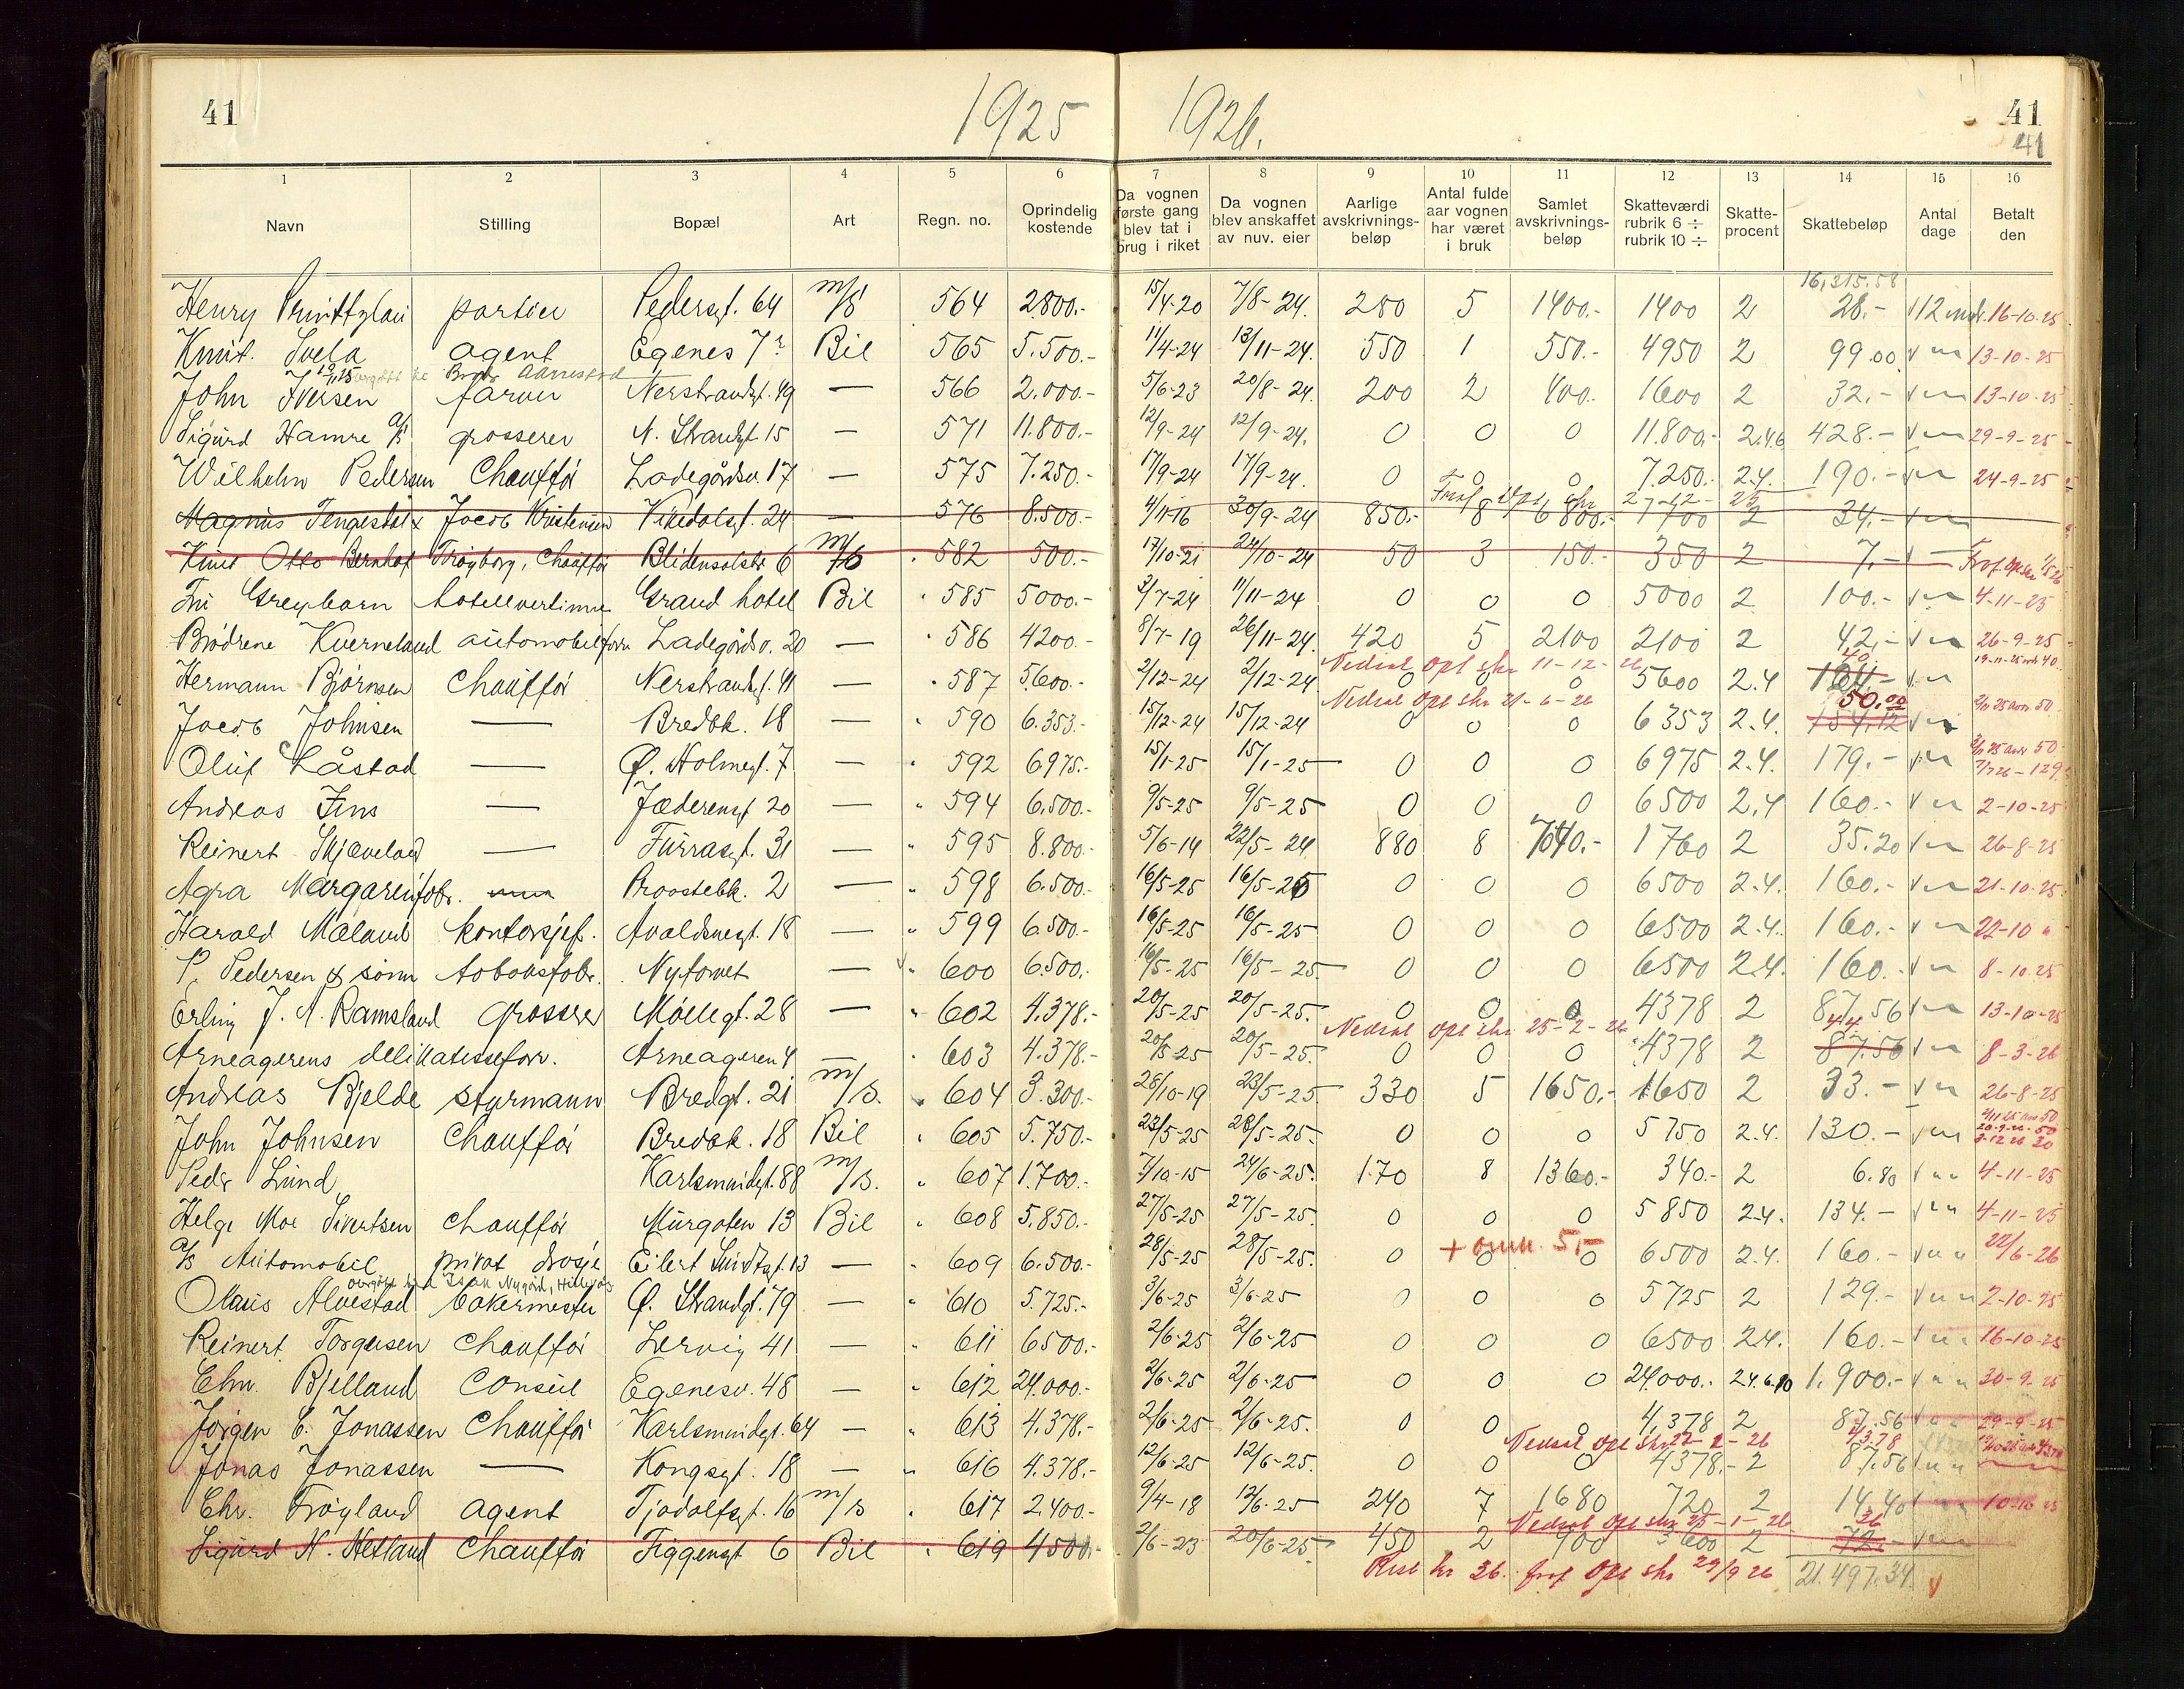 41 1925 1926. 41
41
1 2 3 4 5 6 7 8 9 10 11 12 13 14 15 16
Navn Stilling Bopæl Art Regn. no. Oprindelig kostende Da vognen første gang blev tat i brug i riket Da vognen blev anskaffet av nuv. eier Aarlige avskrivnings-beløp Antal fulde aar vognen har været i bruk Samlet avskrivnings-beløp Skatteværdi rubrik 6 ÷ rubrik 10 ÷ Skatte-procent Skattebeløp Antal dage Betalt den
16,315.58
Henry portier Pedersgt. 64 m/s 564 2800.- 15/4-20 7/8-24. 280 5 1400.- 1400 2 28.- 12 mdr. 16-10-25
Knut Svela agent Egenes 7 Bil 565 5.500.- 11/4-24 13/11-24. 550 1 550.- 4950 2 99.00 13-10-25
John Iversen farver Nerstrandgt. 49 — 566 2.000.- 5/6-23 20/8-24. 200 2 400.- 1600 2 32.- 13-10-25
Sigurd Hamre a/s grosserer N. Strandgt 15 — 571 11.800.- 12/9-24 12/9-24. 0 0 0 11.800.- 2.4.6 428.- 29-9-25
Wilhelm Pedersen Chauffør Ladegårdsv. 17 — 575 7.250.- 17/9-24 17/9-24. 0 0 0 7.250.- 2.4. 190.- 24-9-25
Fraf. opl. skr 27-12-25
Magnus Tengesdal Jacob Kristensen Vikedalsgt. 24 — 576 8.500.- 4/11-16 30/9-24 850.- 8 6800.- 1700 2 34.-
Knut Otto Bernhof Trøyborg, Chauffør Blidensolstr 6 m/s 582 500.- 17/10-21 24/10-24 50 3 150.- 350 2 7.- Fraf. opl skr 1/5 26
Fru Greyborn hotellvertinne Grand hotel Bil 585 5000.- 3/7-24 11/11-24 0 0 0 5000 2 100.- 4-11-25
Brødrene Kverneland automobilforr Ladegårdsv. 20 — 586 4200.- 8/7-19 26/11-24. 420 5 2100 2100 2 42.- 26-9-25
Nedsat opl skr 11-12-26 40. 19-11-25 40.
Hermann Bjørnsen Chauffør Nerstrandgt. 41 — 587 5.600.- 2/12-24 2/12-24 0 0 0 5600 2.4 124.-
Nedsat opl skr 21-6-26 50.00
Jacob Johnsen — Bredbk. 18 — 590 6.353.- 15/12-24 15/12-24 0 0 0 6353 2.4. 154.12
Oluf Låstad — Ø. Holmegt. 7 — 592 6975.- 15/1-25 15/1-25 0 0 0 6975 2.4. 179.- 7/7 26 - 129
Andreas Fins — Jæderengt 20 — 594 6.500.- 9/5-25 9/5-25 0 0 0 6500 2.4 160.- 2-10-25
Reinert Skjæveland — Furrasgt. 31 — 595 8.800.- 5/6-14 22/5-24 880 8 7040.- 1760 2 35.20 26-8-25
Agra Margarinfabr. Proostebk. 2 — 598 6.500.- 16/5-25 16/5-25 0 0 0 6500 2.4. 160.- 21-10-25.
Harald Måland kontorsjef. Avaldsnesgt. 18 — 599 6.500.- 16/5-25 16/5-25 0 0 0 6500 2.4. 160.- 22-10 "
P. Pedersen & sønn tobaksfabr. Nytorvet — 600 6.500.- 16/5-25 16/5-25. 0 0 0 6500 2.4. 160.- 8-10-25
Erling J. A. Ramsland grosserer Møllegt. 28 — 602 4.378.- 20/5-25 20/5-25. 0 0 0 4378 2 87.56 13-10-25
Nedsat opl skr 25-2-26 44
Arneagerens delikatesseforr. Arneageren 4 — 603 4.378.- 20/5-25 20/5-25. 0 0 0 4378 2 87.56 8-3-26
Andreas Bjelde styrmann Bredgt. 21 m/s. 604 3.300.- 28/10-19 23/5-25 330 5 1650.- 1650 2 33.- 26-8-25
John Johnsen Chauffør Bredbk. 18 Bil 605 5.750.- 23/5-25 28/5-25. 0 0 0 5750 2.4. 130.- 20-9-26-50 3-12 26 30
Peder Lund Karlsmindegt. 88 m/s. 607 1.700.- 7/10-15 24/6-25. 170 8 1360.- 340.- 2 6.80 4-11-25
Helge Moe Sivertsen Chauffør Murgaten 13 Bil 608 5.850.- 27/5-25 27/5-25. 0 0 0 5850 2.4. 134.- 4-11-25
+ omk. 5,-
A/s Automobil privat drosje Eilert Sundtsgt. 13 — 609 6.500.- 28/5-25 28/5-25. 0 0 0 6500 2.4. 160.- 22/6-26
Olaus Alvestad bakermester Ø. Strandgt. 79 — 610 5.725.- 3/6-25 3/6-25 0 0 0 5725 2 129.- 2-10-25
Reinert Torgersen Chauffør Lervig 41 — 611 6500.- 2/6-25 2/6-25 0 0 0 6500 2.4. 160.- 16-10-25
Chr. Bjelland Consul Egenesv. 48 — 612 24.000.- 2/6-25 2/6-25 0 0 0 24.000.- 2.4.6.10 1.900.- 30-9-25
Jørgen C. Jonassen Chauffør Karlsmindegt. 64 — 613 4.378.- 2/6-25 2/6-25. 0 0 0 4.378 2 87.56 29-9-25
Nedsat opl skr 22-2-26 43.78
Jonas Jonassen — Kongsgt. 18 — 616 4.378.- 12/6-25 12/6-25. 0 0 0 4378.- 2 87.56
Chr. Frøyland agent Tjodolfsgt. 16 m/s 617 2.400.- 9/4-18 12/6-25 240 7 1680 720 2 14.40 10-10-25
Nedsat opl skr 25-1-26 36
Sigurd N. Hetland Chauffør Figgengt 6 Bil 619 4500.- 2/6-23 20/6-25 450 2 900 3600 2 72.-
Rest kr 36. fraf opl skr 29/9 26 21.497.34